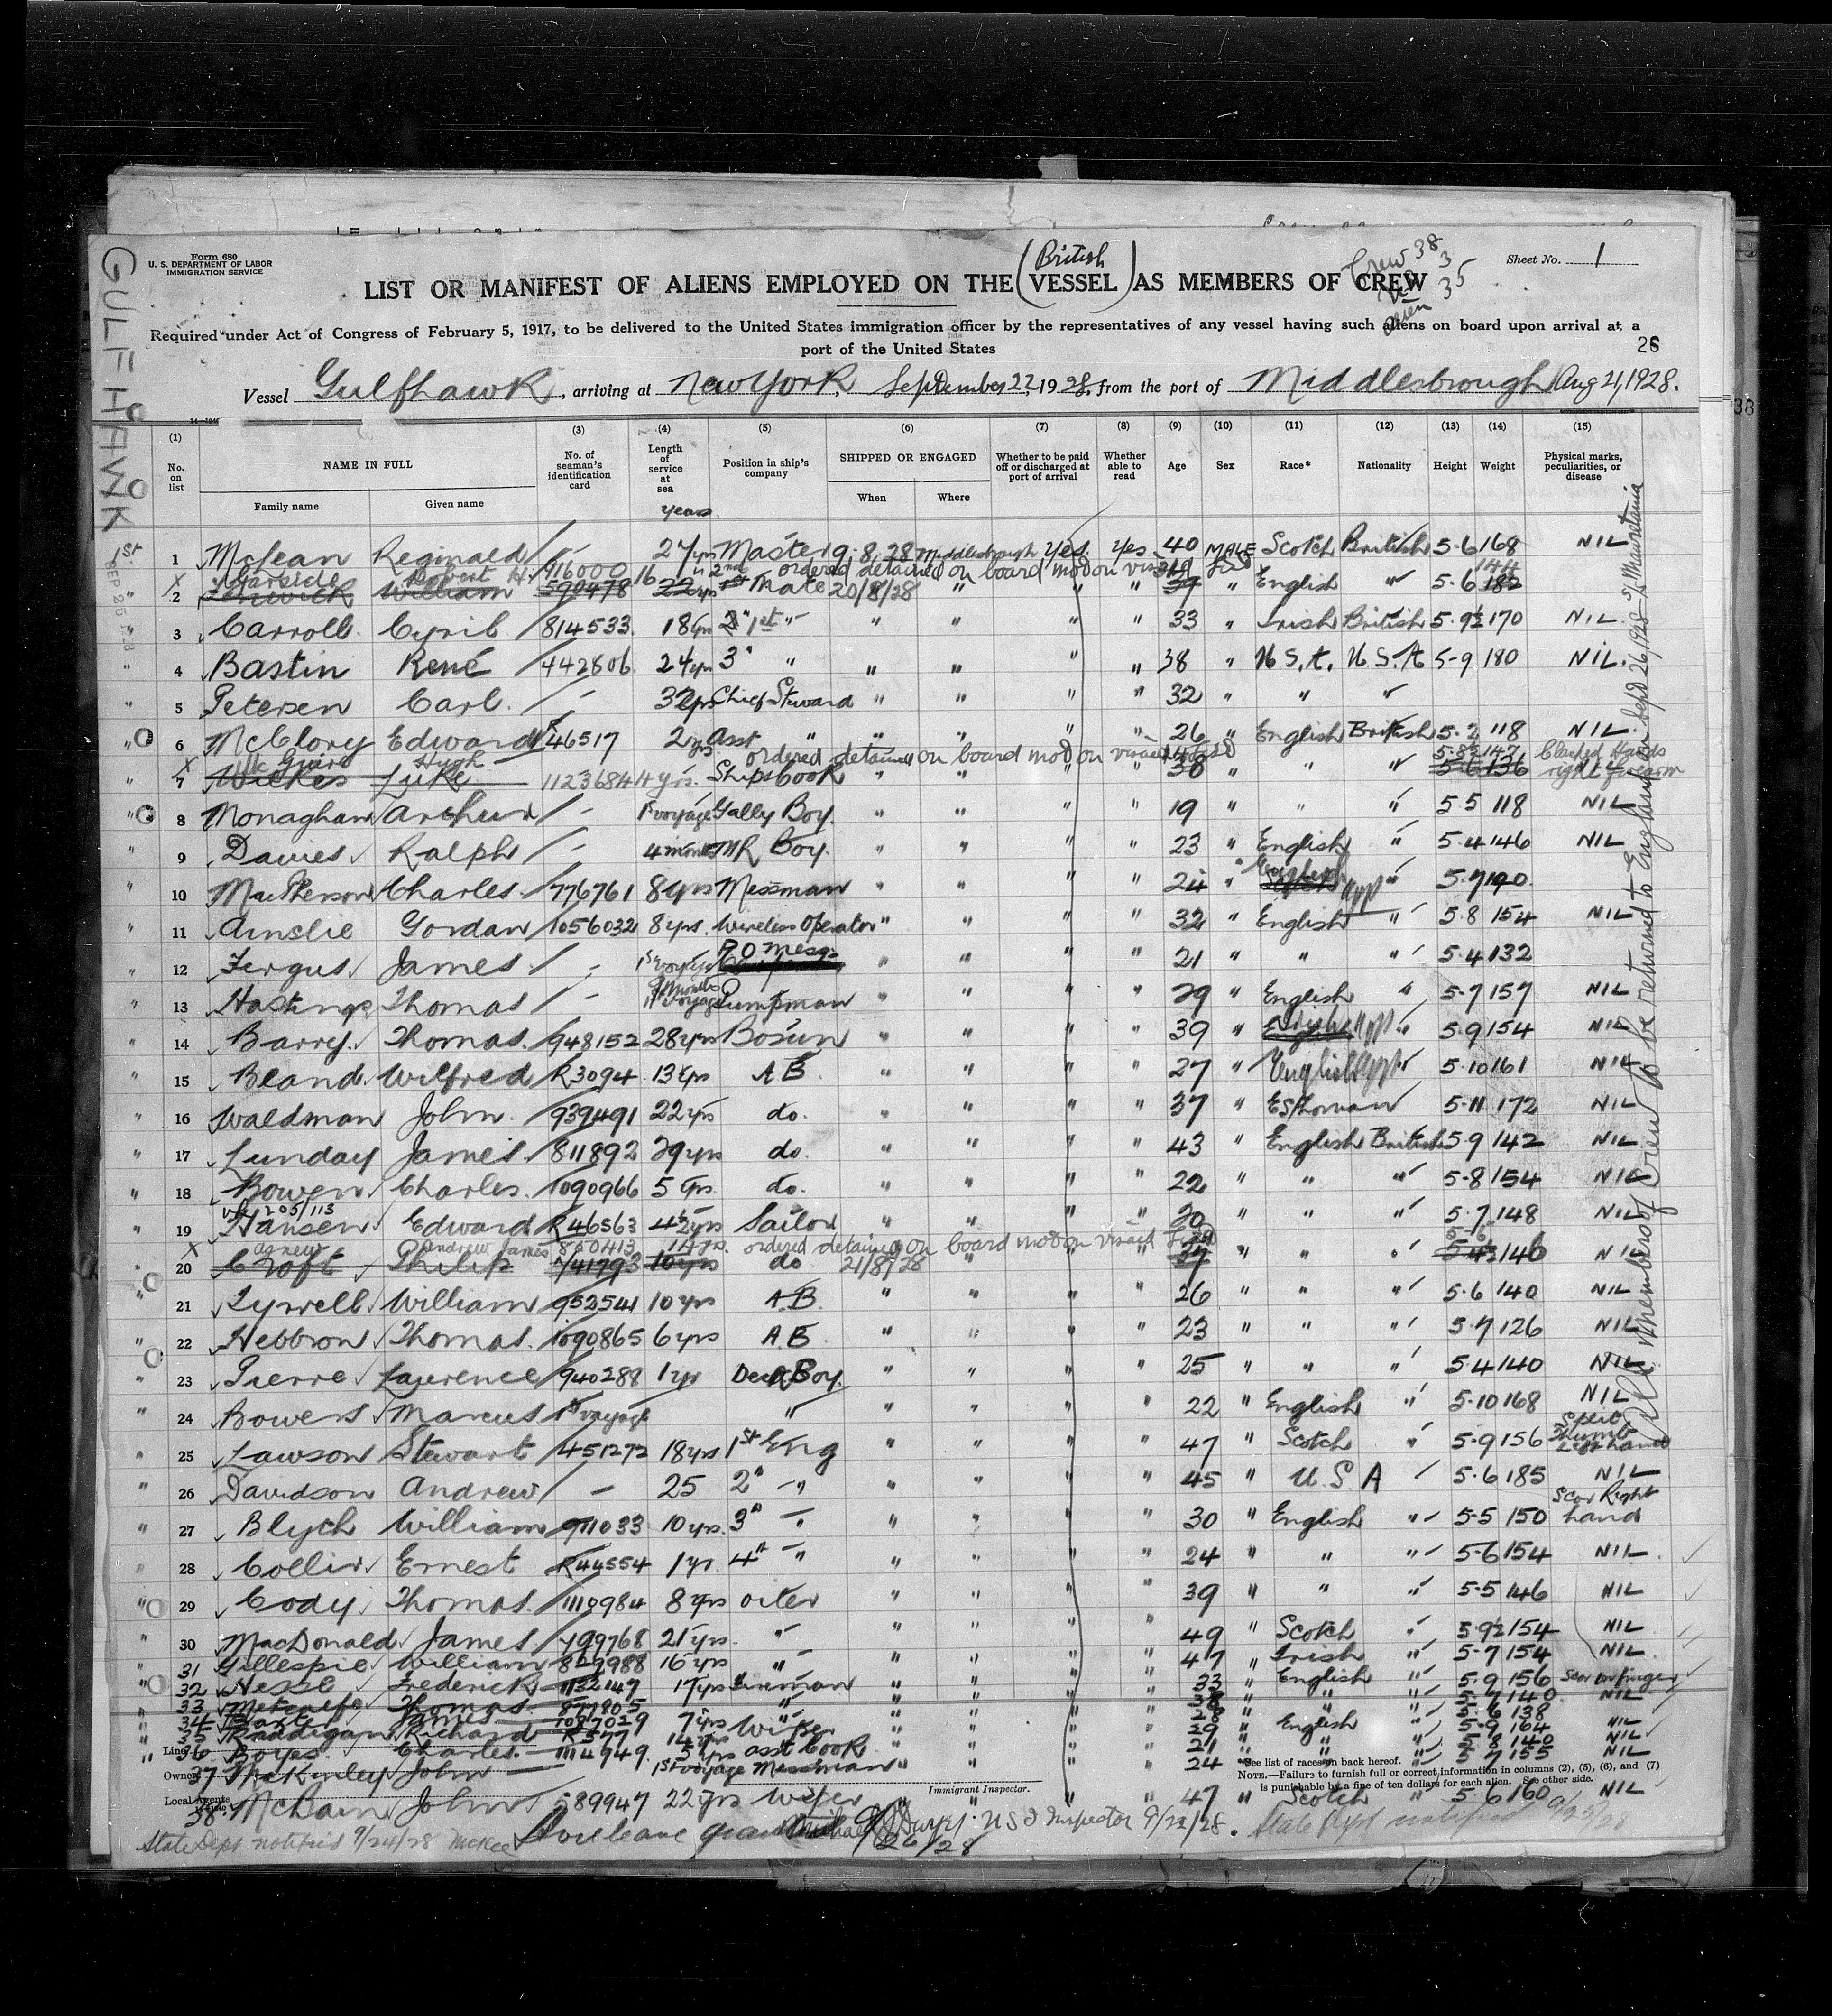 Form 680
U. S. DEPARTMENT OF LABOR
IMMIGRATION SERVICE
GULFHAWK
Sheet No. 1
(British)
LIST OR MANIFEST OF ALIENS EMPLOYED ON THE VESSEL AS MEMBERS OF CREW
Crew 38
3
35
alien
Required under Act of Congress of February 5, 1917, to be delivered to the United States immigration officer by the representatives of any vessel having such aliens on board upon arrival at a
port of the United States
26
Vessel Gulfhawk, arriving at New York, September 22, 1928, from the port of Middlesbrough Aug 21, 1928.
38
(1) (3) (4) (5) (6) (7) (8) (9) (10) (11) (12) (13) (14) (15)
No. on list NAME IN FULL Family name Given name No. of seaman's identification card Length of service at sea years Position in ship's company SHIPPED OR ENGAGED When Where Whether to be paid off or discharged at port of arrival Whether able to read Age Sex Race* Nationality Height Weight Physical marks, peculiarities, or disease
1 McLean Reginald – 27 yrs Master 9.8.28 Middlesbrough Yes. Yes 40 MALE Scotch British 5-6 168 NIL
Garside Robert H. 916000 16 " 2nd ordered detained on board mod on visaed 144
2 William 590478 22 yrs 1st Mate 20/8/28 " " " 39 " English " 5-6 182
3 Carroll Cyril 814533 18 yrs 2" 1st " " " " " 33 " Irish British 5-9½ 170 NIL
4 Bastin René 442806 24 yrs 3" " " " " " 38 " U.S.A. U.S.A 5-9 180 NIL.
5 Petersen Carl. – 32 yrs Chief Steward " " " " 32 " " "
6 McClory Edward 46517 2 yrs Asst " " " " " 26 " English British 5-2 118 NIL
Mc Guire Hugh ordered detained on board mod on visaed 5-8½ 147 Clasped Hands
7 Wickes Luke 1123684 4 yrs. Ships Cook " " " " 30 " " " 5-6 136 right forearm
8 Monaghan Arthur – 1st voyage Gally Boy. " " " " 19 " " " 5-5 118 NIL
9 Davies Ralph – 4 months MR Boy. " " " " 23 " English " 5-4 146 NIL
10 MacPherson Charles. 776761 8 yrs Messman " " " " 24 " " 5-7 190
11 Ainslie Gordan 1056032 8 yrs. Wireless Operator " " " " 32 " English " 5-8 154 NIL
12 Fergus James – 1st voyage P O Mess " " " " 21 " " " 5-4 132
13 Hastings Thomas – 9 months Pumpman " " " " 29 " English " 5-7 157 NIL
14 Barry Thomas. 948152 28 yrs Bosun " " " " 39 " " 5-9 154 NIL
15 Bland Wilfred R3094 13 yrs A B " " " " 27 " English " 5-10 161 NIL
16 Waldman John. 939491 22 yrs do. " " " " 37 " Esthonian 5-11 172 NIL
17 Lunday James. 811892 29 yrs do. " " " " 43 " English British 5-9 142 NIL
18 Bowen Charles. 1090966 5 yrs. do. " " " " 22 " " " 5-8 154 NIL
205/113
19 Hansen Edward R46563 4½ yrs Sailor " " " " 20 " " " 5-7 148 NIL
Agnew Andrew James 850413 14 yrs. ordered detained on board mod on visaed
20 Croft Philip 10 yrs do 21/8/28 " " " " " " 5-4½ 140 NIL
21 Tyrrell William 952541 10 yrs A.B. " " " " 26 " " " 5-6 140 NIL
22 Hebbron Thomas. 1090865 6 yrs A B. " " " " 23 " " " 5-7 126 NIL
23 Pierre Laurence 940288 1 yr Deck Boy. " " " " 25 " " " 5-4 140 NIL
24 Bowers Marcus 1st voyage " " " " " 22 " English " 5-10 168 NIL
25 Lawson Stewart 451272 18 yrs 1st Eng " " " " 47 " Scotch " 5-9 156 Split Thumb left hand
26 Davidson Andrew – 25 2" " " " " " 45 " U.S A 5-6 185 NIL
27 Blyth William 911033 10 yrs. 3" " " " " " 30 " English " 5-5 150 Scar Right hand
28 Collier Ernest R44554 1 yr. 4" " " " " " 24 " " " 5-6 154 NIL
29 Cody Thomas. 1110984 8 yrs oiler " " " " 39 " " " 5-5 146 NIL
30 MacDonald James 799768 21 yrs. " " " " " 49 " Scotch " 5-9½ 154 NIL
31 Gillespie William 829988 16 yrs " " " " " 47 " Irish " 5-7 154 NIL
32 Nessl Frederick 1132147 17 yrs Fireman " " " " 33 " English " 5-9 156 Scar on finger
33 Metcalfe Thomas 877805 " " " " " " " 5-7 140 NIL
34 James 1087029 7 yrs " " " " " 28 " " " 5-6 138
35 Raddigan Richard R377 14 yrs Wiper " " " " 29 " English " 5-9 164 NIL
36 Boyes Charles. 1114949 5 yrs asst Cook " " " " 21 " " " 5-8 140 NIL
37 McKinley John – 1st voyage Messman " " " " 24 " " " 5-7 155 NIL
38. McBain John 589947 22 yrs Wiper " " " " 47 " Scotch " 5-6 160 NIL
Line
Owners
Local Agents
Immigrant Inspector.
*See list of races on back hereof.
NOTE.—Failure to furnish full or correct information in columns (2), (5), (6), and (7)
is punishable by a fine of ten dollars for each alien. See other side.
State Dept notified 9/24/28 McKee Shore leave granted 9/26/28
U S I Inspector 9/22/28. State Dept notified 9/25/28
All members of crew to be returned to England on Sept 26, 1928 S/S Mauretania